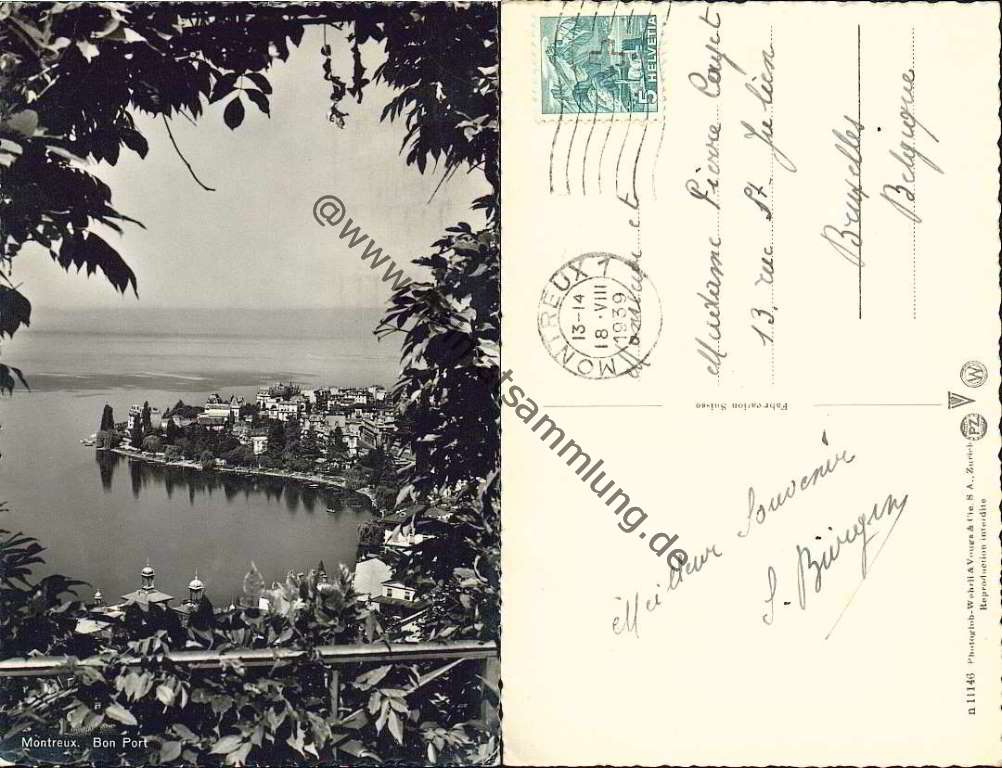 Montreux. Bon Port
@www.
tsammlung.de
5 HELVETIA
MONTREUX 1
13-14
18.VIII
1939
Monsieur et
Madame Pierre
13, rue St. Julien
Bruxelles
Belgique
Fabrication Suisse
PZ
W
Meilleur Souvenir
S.
n 11146 Photoglob-Wehrli & Vouga & Cie. S A., Zurich
Reproduction interdite